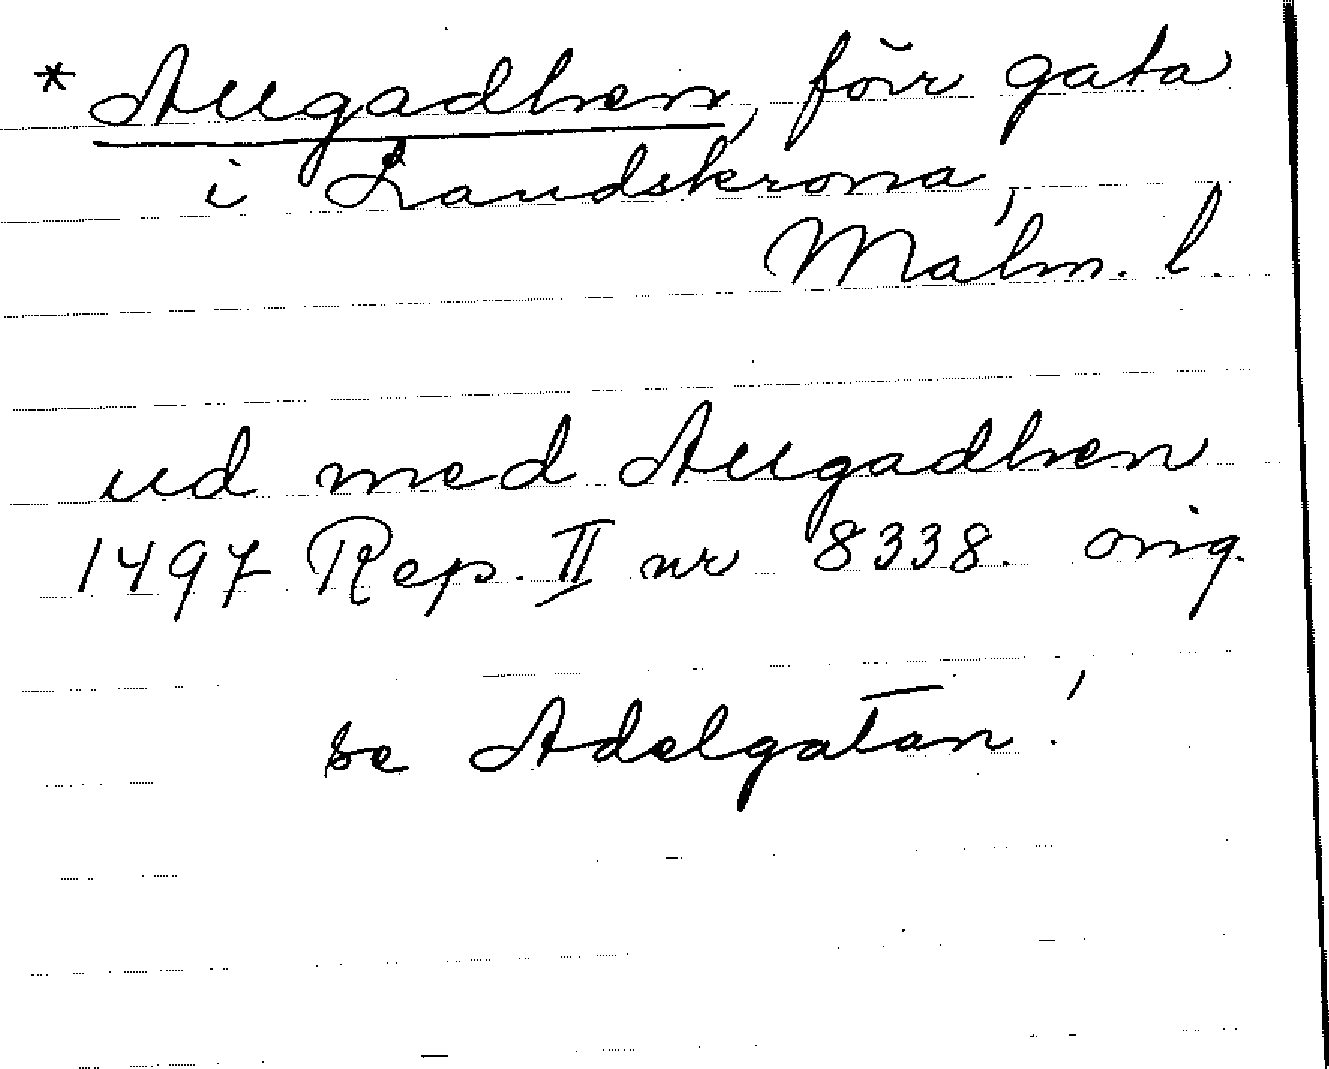 * Allgadhen, förr gata
i Landskrona,
Malm. l.
ud med Allgadhen
1497 Rep. II nr 8338. orig.
se Adelgatan!